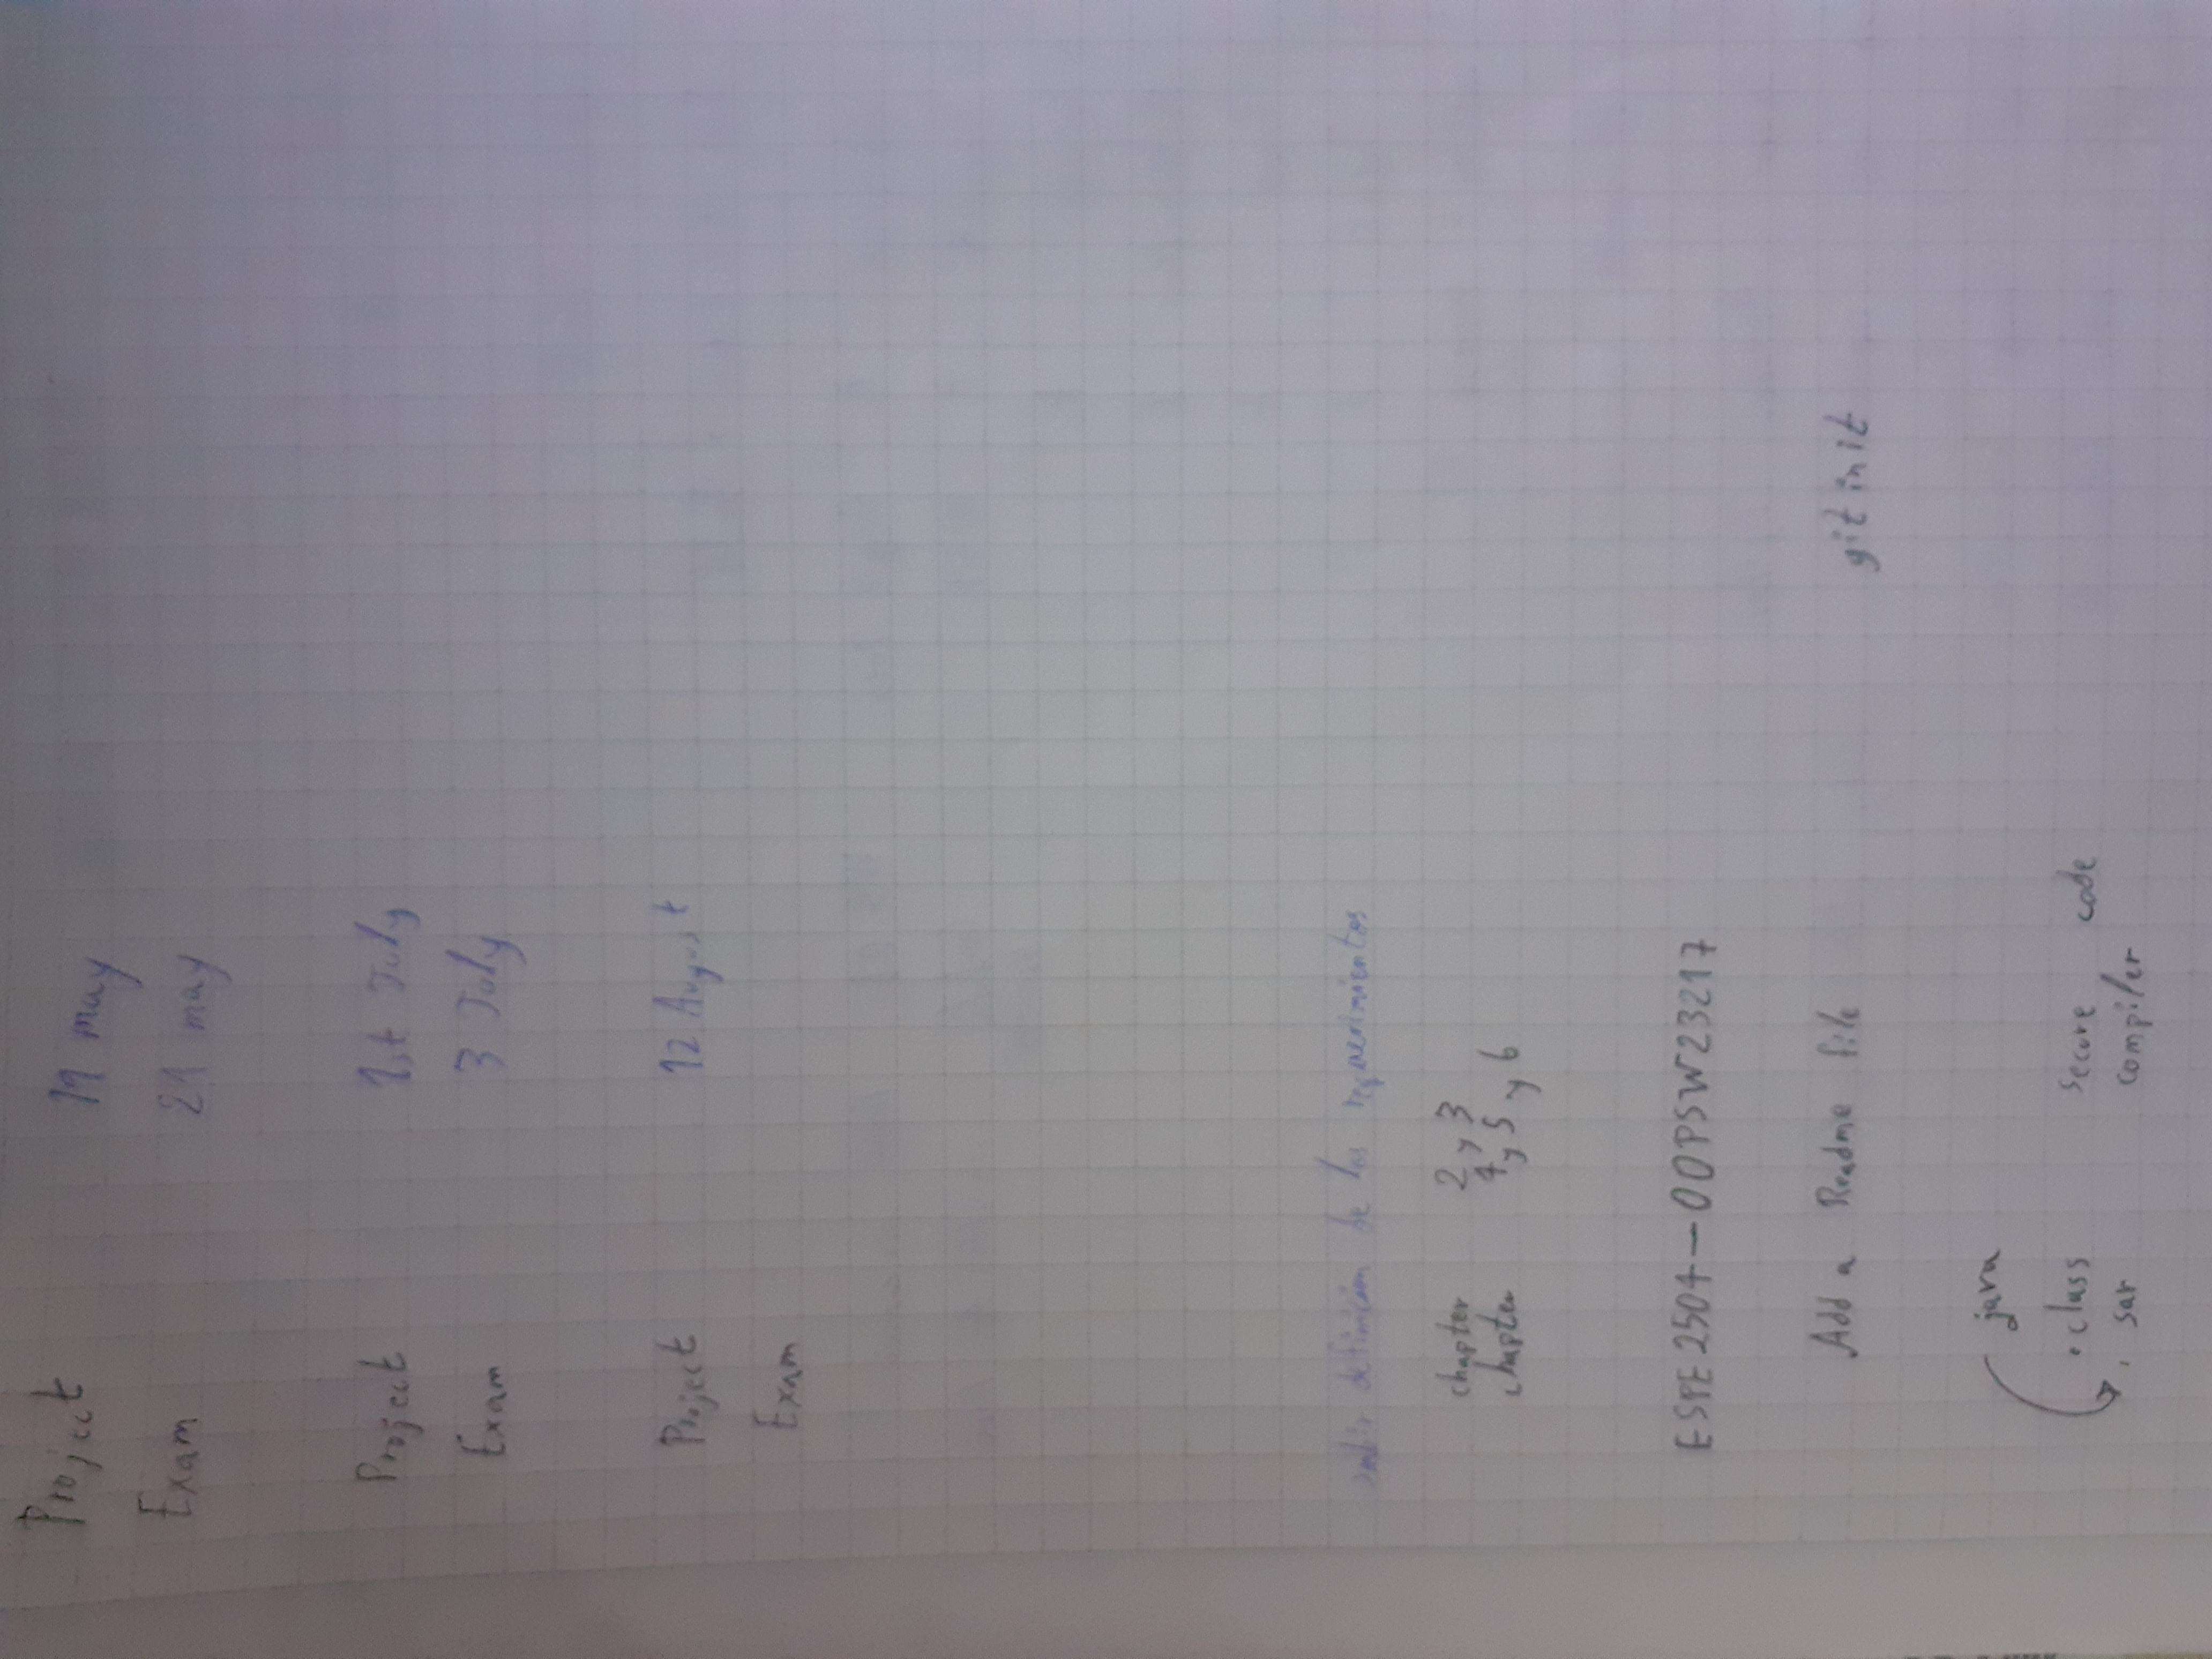 Project 19 may
Exam 21 may
Project 1st July
Exam 3 July
Project 12 August
Exam
definición de los requerimientos
chapter 2 y 3
chapter 4 y 5 y 6
ESPE2504-OOPSW23217
Add a Readme file git init
java
.class secure code
. sar compiler